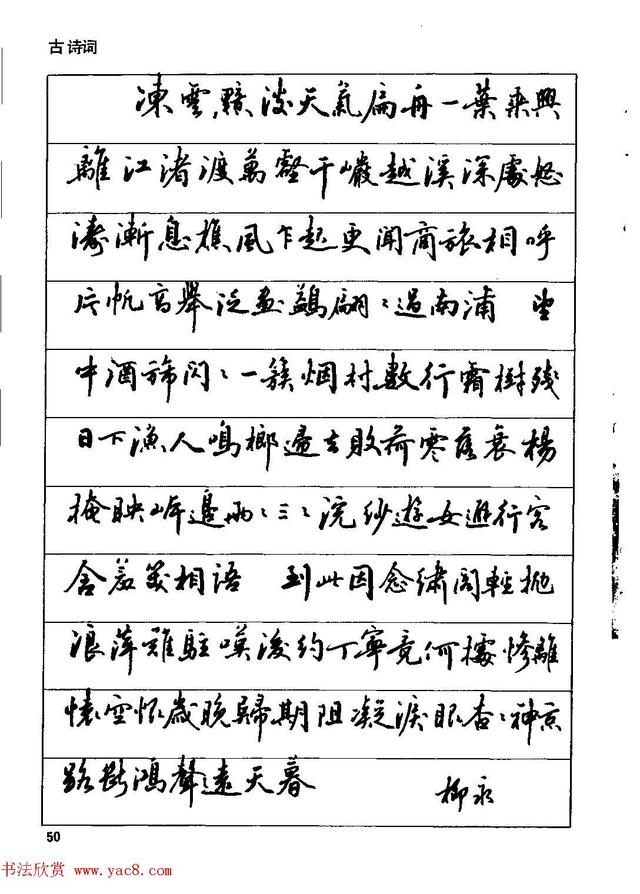 古诗词
凍雲黯淡天氣扁舟一葉乘興
離江渚渡萬壑千巖越溪深處怒
濤漸息樵風乍起更聞商旅相呼
片帆高舉泛畫鷁翩〻過南浦 望
中酒旆閃〻一簇烟村數行霜樹殘
日下漁人鳴榔歸去敗荷零落衰楊
掩映岸邊兩〻三〻浣紗遊女避行客
含羞笑相語 到此因念繡閣輕抛
浪萍難駐嘆後約丁寧竟何據慘離
懷空恨歲晚歸期阻凝淚眼杳〻神京
路斷鴻聲遠天暮 柳永
50
书法欣赏 www.yac8.com